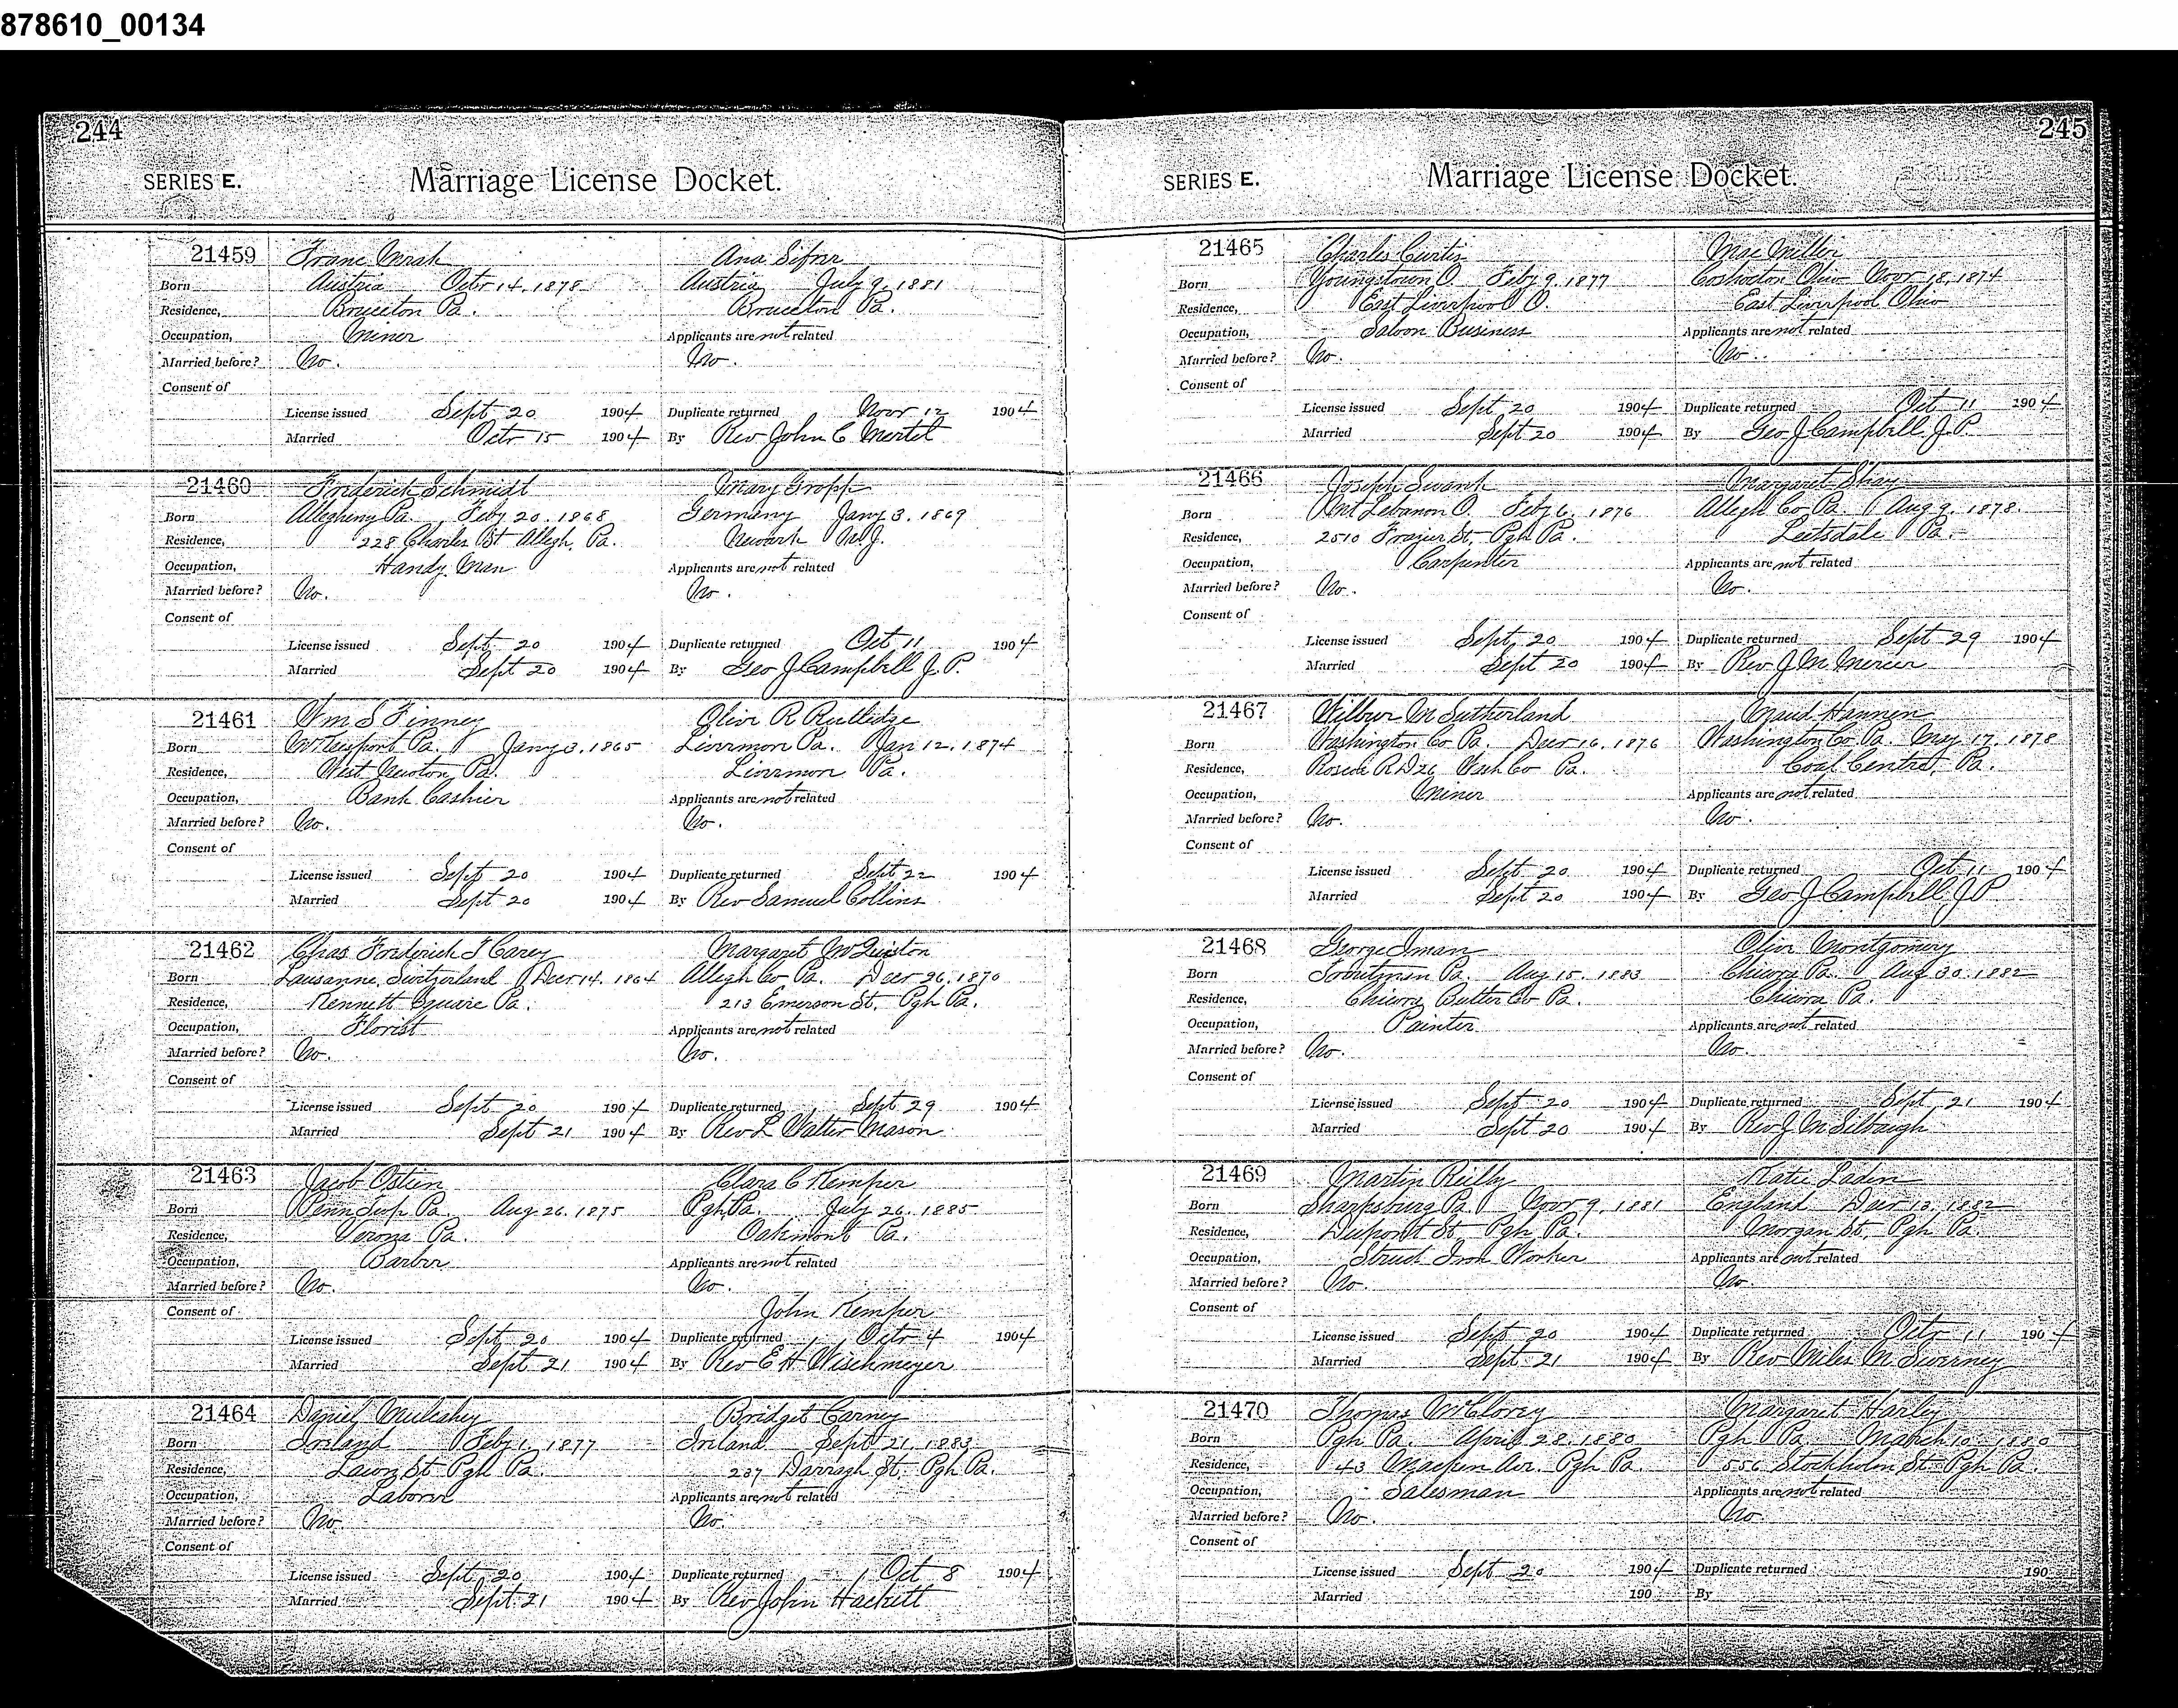 878610_00134
244
SERIES E.
Marriage License Docket.
21459 Franc Mrak Ana Sifrer
Born Austria Octr 14, 1878 Austria July 9, 1881
Residence, Bruceton Pa. Bruceton Pa.
Occupation, Miner Applicants are not related
Married before? No. No.
Consent of
License issued Sept 20 1904 Duplicate returned Novr 12 1904
Married Octr 15 1904 By Rev John C Mertel
21460 Frederick Schmidt Mary Gropp
Born Allegheny Pa. Feby 20, 1868 Germany Jany 3, 1869
Residence, 228 Charles St Allegh, Pa. Newark N.J.
Occupation, Handy Man Applicants are not related
Married before? No. No.
Consent of
License issued Sept 20 1904 Duplicate returned Oct 11 1904
Married Sept 20 1904 By Geo J Campbell J.P.
21461 Wm S Finney Olive R Rutlidge
Born Pa. Jany 3, 1865 Livermon Pa. Jan 12, 1874
Residence, West Newton Pa. Livermon Pa.
Occupation, Bank Cashier Applicants are not related
Married before? No. No.
Consent of
License issued Sept 20 1904 Duplicate returned Sept 22 1904
Married Sept 20 1904 By Rev Samuel Collins
21462 Chas Frederick T Carey Margaret McQuiston
Born Lausanne, Switzerland Decr 14, 1864 Allegh Co Pa. Decr 26, 1870
Residence, Kennett Square Pa. 213 Emerson St. Pgh Pa.
Occupation, Florist Applicants are not related
Married before? No. No.
Consent of
License issued Sept 20 1904 Duplicate returned Sept 29 1904
Married Sept 21 1904 By Rev L Walter Mason
21463 Jacob Ostien Clara C Kemper
Born Penn Twp Pa. Aug 26, 1875 Pgh Pa. July 26, 1885
Residence, Verona Pa. Oakmont Pa.
Occupation, Barber Applicants are not related
Married before? No. No.
Consent of John Kemper
License issued Sept 20 1904 Duplicate returned Octr 4 1904
Married Sept 21 1904 By Rev E H Wischmeyer
21464 Daniel Mulcahey Bridget Carney
Born Ireland Feby 1, 1877 Ireland Sept 21, 1883
Residence, Lawn St Pgh Pa. 237 Darragh St, Pgh Pa.
Occupation, Laborer Applicants are not related
Married before? No. No.
Consent of
License issued Sept 20 1904 Duplicate returned Oct 8 1904
Married Sept 21 1904 By Rev John Hackett
245
SERIES E.
Marriage License Docket.
21465 Charles Curtis Mae Miller
Born Youngstown O. Feby 9, 1877 Coshocton Ohio Novr 18, 1874
Residence, East Liverpool O. East Liverpool Ohio
Occupation, Saloon Business Applicants are not related
Married before? No. No.
Consent of
License issued Sept 20 1904 Duplicate returned Oct 11 1904
Married Sept 20 1904 By Geo J Campbell J.P.
21466 Joseph Swank Margaret Shay
Born Mt Lebanon O. Feby 6, 1876 Allegh Co Pa Aug 9, 1878.
Residence, 2510 Frazier St, Pgh Pa. Leetsdale Pa.
Occupation, Carpenter Applicants are not related
Married before? No. No.
Consent of
License issued Sept 20 1904 Duplicate returned Sept 29 1904
Married Sept 20 1904 By Rev J. M. Mercer
21467 Wilbur M Sutherland Maud Hannen
Born Washington Co Pa. Decr 16, 1876 Washington Co Pa. May 17, 1878
Residence, Roscoe R D 26 Wash Co Pa. Coal Centre, Pa.
Occupation, Miner Applicants are not related
Married before? No. No.
Consent of
License issued Sept 20 1904 Duplicate returned Oct 11 1904
Married Sept 20 1904 By Geo J Campbell, J P
21468 George Iman Olive Montgomery
Born Pa. Aug 15, 1883 Chicora Pa. Aug 30, 1882
Residence, Chicora Butler Co Pa. Chicora Pa.
Occupation, Painter Applicants are not related
Married before? No. No.
Consent of
License issued Sept 20 1904 Duplicate returned Sept 21 1904
Married Sept 20 1904 By Rev J M Silbaugh
21469 Martin Reilly Katie Laden
Born Sharpsburg Pa Novr 9, 1881 England Decr 13, 1882
Residence, Dupont St Pgh Pa. Morgan St, Pgh Pa.
Occupation, Struct Iron Worker Applicants are not related
Married before? No. No.
Consent of
License issued Sept 20 1904 Duplicate returned Octr 11 1904
Married Sept 21 1904 By Rev Miles M Swerney
21470 Thomas McClorey Margaret Harley
Born Pgh Pa. April 28, 1880 Pgh Pa March 10, 1880
Residence, 43 Ave. Pgh Pa. 556 Stockholm St Pgh Pa.
Occupation, Salesman Applicants are not related
Married before? No. No.
Consent of
License issued Sept 20 1904 Duplicate returned 190
Married 190 By